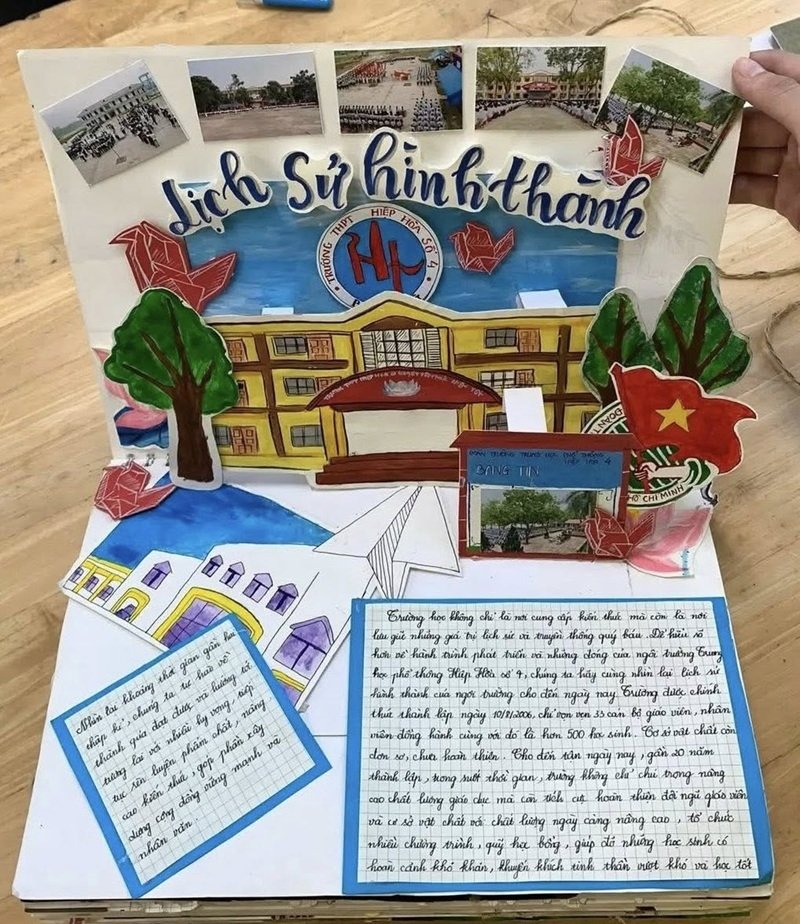 Lịch Sử hình thành
TRƯỜNG THPT HIỆP HÒA SỐ 4
ĐOÀN TRƯỜNG TRUNG HỌC PHỔ THÔNG
HIỆP HÒA 4
BẢNG TIN
HỒ CHÍ MINH
Nhìn lại khoảng thời gian gần hai
thập kỉ, chúng ta tự hào về
thành quả đạt được và hướng tới
tương lai với nhiều kỳ vọng, tiếp
tục rèn luyện phẩm chất, nâng
cao kiến thức, góp phần xây
dựng cộng đồng vững mạnh và
nhân văn.
Trường học không chỉ là nơi cung cấp kiến thức mà còn là nơi
lưu giữ những giá trị lịch sử và truyền thống quý báu. Để hiểu rõ
hơn về hành trình phát triển và những đóng của ngôi trường Trung
học phổ thông Hiệp Hòa số 4, chúng ta hãy cùng nhìn lại lịch sử
hình thành của ngôi trường cho đến ngày nay. Trường được chính
thức thành lập ngày 10/8/2006, chỉ vọn vẹn 33 cán bộ giáo viên, nhân
viên đồng hành cùng với đó là hơn 500 học sinh. Cơ sở vật chất còn
đơn sơ, chưa hoàn thiện. Cho đến tận ngày nay, gần 20 năm
thành lập, trong suốt thời gian, trường không chỉ chú trọng nâng
cao chất lượng giáo dục mà còn tích cực hoàn thiện đội ngũ giáo viên
và cơ sở vật chất với chất lượng ngày càng nâng cao, tổ chức
nhiều chương trình, quỹ học bổng, giúp đỡ những học sinh có
hoàn cảnh khó khăn, khuyến khích tinh thần vượt khó và học tốt